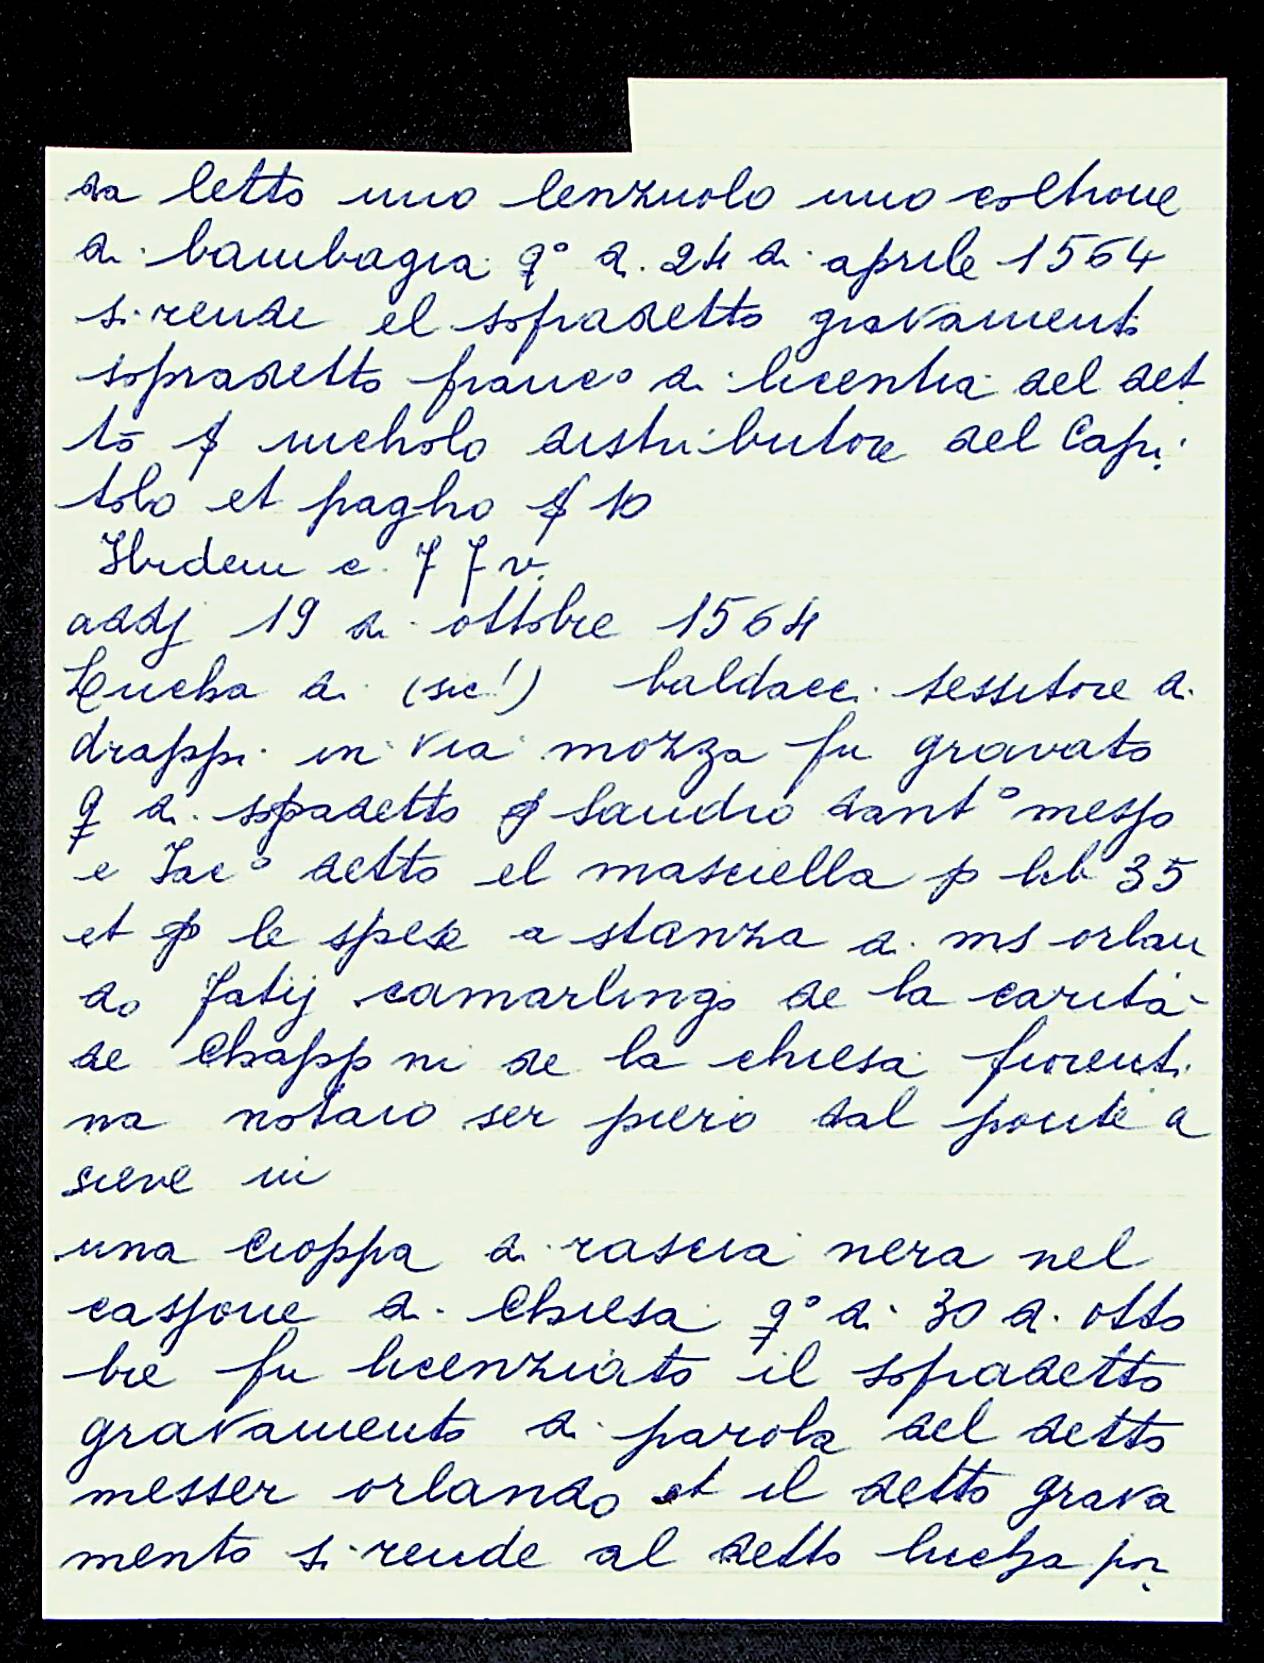 da letto uno lenzuolo uno coltrone
di bambagia q° dì 24 di aprile 1564
si rende el sopradetto gravamento
sopradetto franc° di licentia del det
to ꝑ nicholo distributore del Capi
tolo et pagho ꝑ 10
Ibidem c. 77 v.
addj 19 di ottobre 1564
Lucha di (sic!) baldacci tessitore di
drappi in via mozza fu gravato
q dì sopadetto ꝑ Sandro dant° messo
e Iac° detto el masciella ꝑ lib 35
et ꝑ le spese a stanza di ms orlan
do Fatij camarlingo de la carità
de Chapp ni de la chiesa fiorenti
na notaio ser piero dal ponte a
sieve in
una cioppa di rascia nera nel
cassone di Chiesa q° dì 30 di otto
bre fu licenziato il sopradetto
gravamento di parola del detto
messer orlando et il detto grava
mento si rende al detto lucha